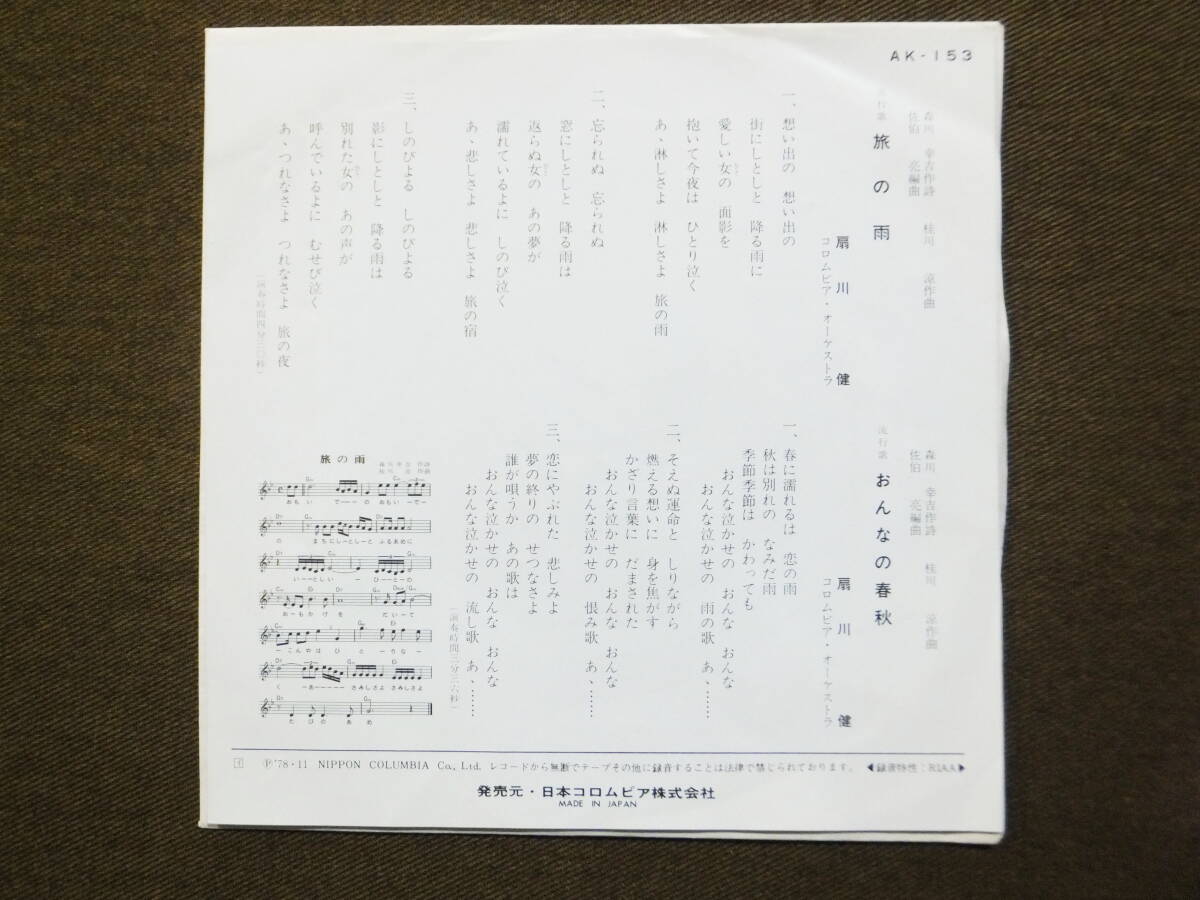 AK-153
流行歌
旅の雨
森川 幸吉作詩
桂川 涼作曲
佐伯 亮編曲
扇川 健
コロムビア・オーケストラ
一、想い出の 想い出の
街にしとしと 降る雨に
愛しい女の 面影を
抱いて今夜は ひとり泣く
あゝ淋しさよ 淋しさよ 旅の雨
二、忘られぬ 忘られぬ
窓にしとしと 降る雨は
返らぬ女の あの夢が
濡れているよに しのび泣く
あゝ悲しさよ 悲しさよ 旅の宿
三、しのびよる しのびよる
影にしとしと 降る雨は
別れた女の あの声が
呼んでいるよに むせび泣く
あゝつれなさよ つれなさよ 旅の夜
(演奏時間四分三〇秒)
流行歌
おんなの春秋
森川 幸吉作詩
桂川 涼作曲
佐伯 亮編曲
扇川 健
コロムビア・オーケストラ
一、春に濡れるは 恋の雨
秋は別れの なみだ雨
季節季節は かわっても
おんな泣かせの おんな おんな
おんな泣かせの 雨の歌 あゝ……
二、そえぬ運命と しりながら
燃える想いに 身を焦がす
かざり言葉に だまされた
おんな泣かせの おんな おんな
おんな泣かせの 恨み歌 あゝ……
三、恋にやぶれた 悲しみよ
夢の終りの せつなさよ
誰が唄うか あの歌は
おんな泣かせの おんな おんな
おんな泣かせの 流し歌 あゝ……
(演奏時間三分三六秒)
旅の雨
森川幸吉 作詩
桂川 涼 作曲
おもい で―――の おもい―で―
の まちにしーとしーと ふるあめに
い――としい ―ひ―と―の
お―もかげを だ―いて
―こんやは ひ と―りな―
く ―あ――――― さみしさよ さみしさよ
たびの あめ
f Ⓟ'78・11 NIPPON COLUMBIA Co., Ltd. レコードから無断でテープその他に録音することは法律で禁じられております。 ◀録音特性:RIAA▶
発売元・日本コロムビア株式会社
MADE IN JAPAN